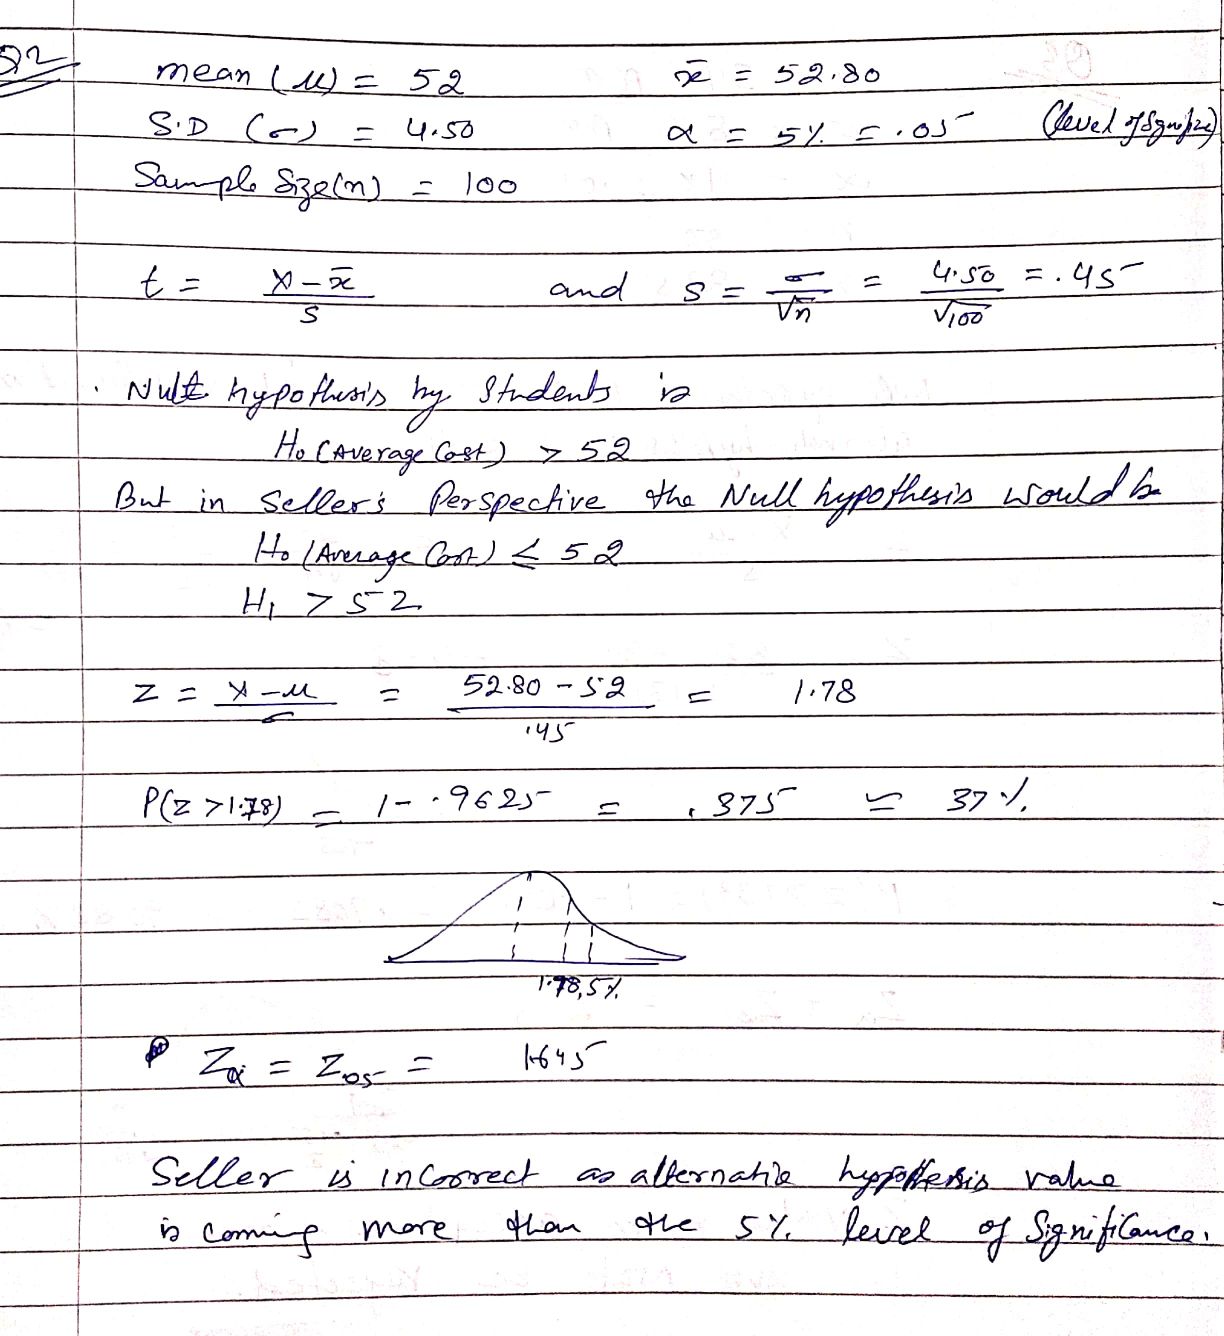 Q2
mean (μ) = 52 x̄ = 52.80
S.D (σ) = 4.50 α = 5% = .05 (level of
Sample Size(n) = 100
t = (x - x̄)/s and s = σ/√n = 4.50/√100 = .45
Null hypothesis by Students is
H₀ (Average Cost) > 52
But in Seller's Perspective the Null hypothesis would be
H₀ (Average Cost) ≤ 52
H₁ > 52
Z = (x - μ)/σ = (52.80 - 52)/.45 = 1.78
P(Z > 1.78) = 1 - .9625 = .375 ≃ 37%
1.78, 5%
Zα = Z.05 = 1.645
Seller is incorrect as alternative hypothesis value
is coming more than the 5% level of Significance.